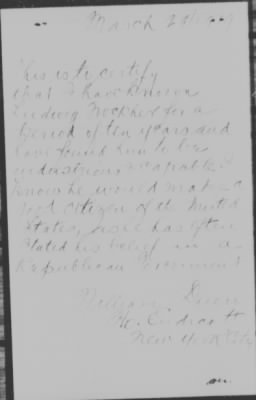 March 28
This is to certify
that I have known
Ludwig for a
period of ten years and
have found him to be
industrious & capable. I
know he would make a
good citizen of the United
States, as he has often
stated his belief in a
Republican Government
William
New York City